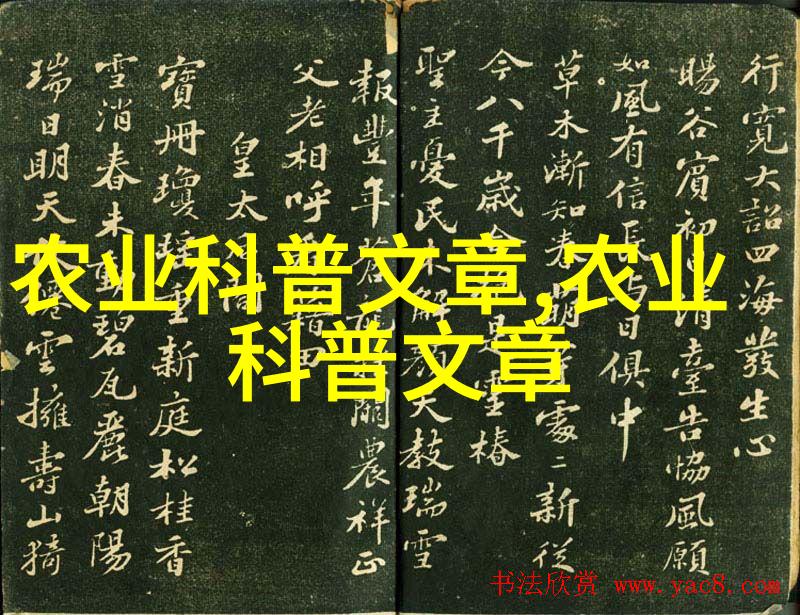 行寬大詔四海發生心
暘谷賓初清臺告協風願
如風有信長与日俱中
草木漸知春萌處〻新從
今八千歲是靈椿
聖主憂民未解顏天教瑞雪
報豐年蒼闕農祥正
父老相呼田
皇太后閤
寶冊瓊瑤重新庭松桂香
雪消春未動碧瓦麗朝陽
瑞日明天雲擁壽山猗
农业科普文章,农业
科普文章
书法欣赏 www.yac8.com